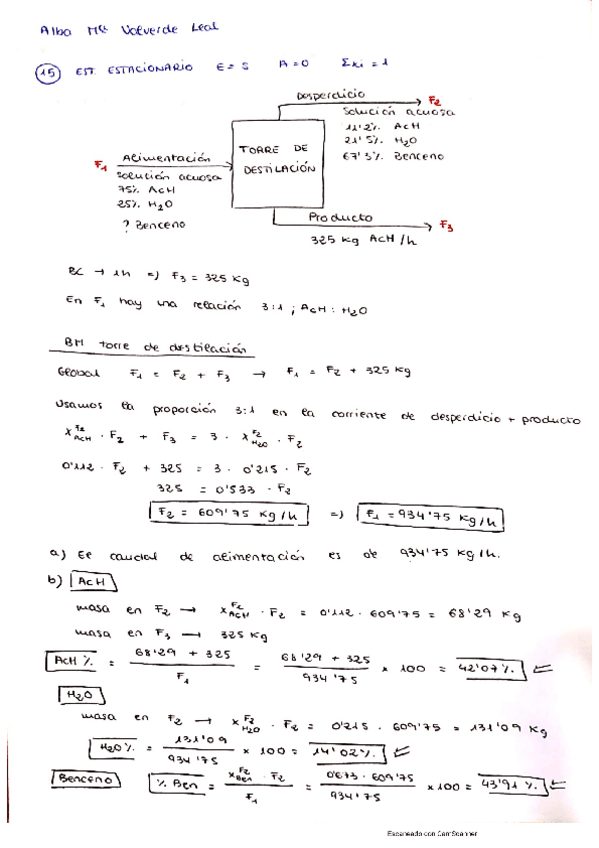 Alba Mª Valverde Leal
15 EST. ESTACIONARIO E = S A = 0 Σxi = 1
Desperdicio F2
Solución acuosa
11'2% AcH
21'5% H2O
67'3% Benceno
TORRE DE
DESTILACIÓN
F1 Alimentación
Solución acuosa
75% AcH
25% H2O
? Benceno
Producto F3
325 kg AcH/h
BC → 1h => F3 = 325 Kg
En F1 hay una relación 3:1 ; AcH : H2O
BM torre de destilación
Global F1 = F2 + F3 → F1 = F2 + 325 Kg
Usamos la proporción 3:1 en la corriente de desperdicio + producto
x_AcH^F2 · F2 + F3 = 3 · x_H2O^F2 · F2
0'112 · F2 + 325 = 3 · 0'215 · F2
325 = 0'533 · F2
F2 = 609'75 Kg/h => F1 = 934'75 Kg/h
a) El caudal de alimentación es de 934'75 Kg/h.
b) AcH
masa en F2 → x_AcH^F2 · F2 = 0'112 · 609'75 = 68'29 Kg
masa en F3 → 325 Kg
AcH % = (68'29 + 325)/F1 = (68'29 + 325)/934'75 × 100 = 42'07%
H2O
masa en F2 → x_H2O^F2 · F2 = 0'215 · 609'75 = 131'09 Kg
H2O % = 131'09/934'75 × 100 = 14'02%
Benceno % Ben = (x_Ben^F2 · F2)/F1 = (0'673 · 609'75)/934'75 × 100 = 43'91%
Escaneado con CamScanner